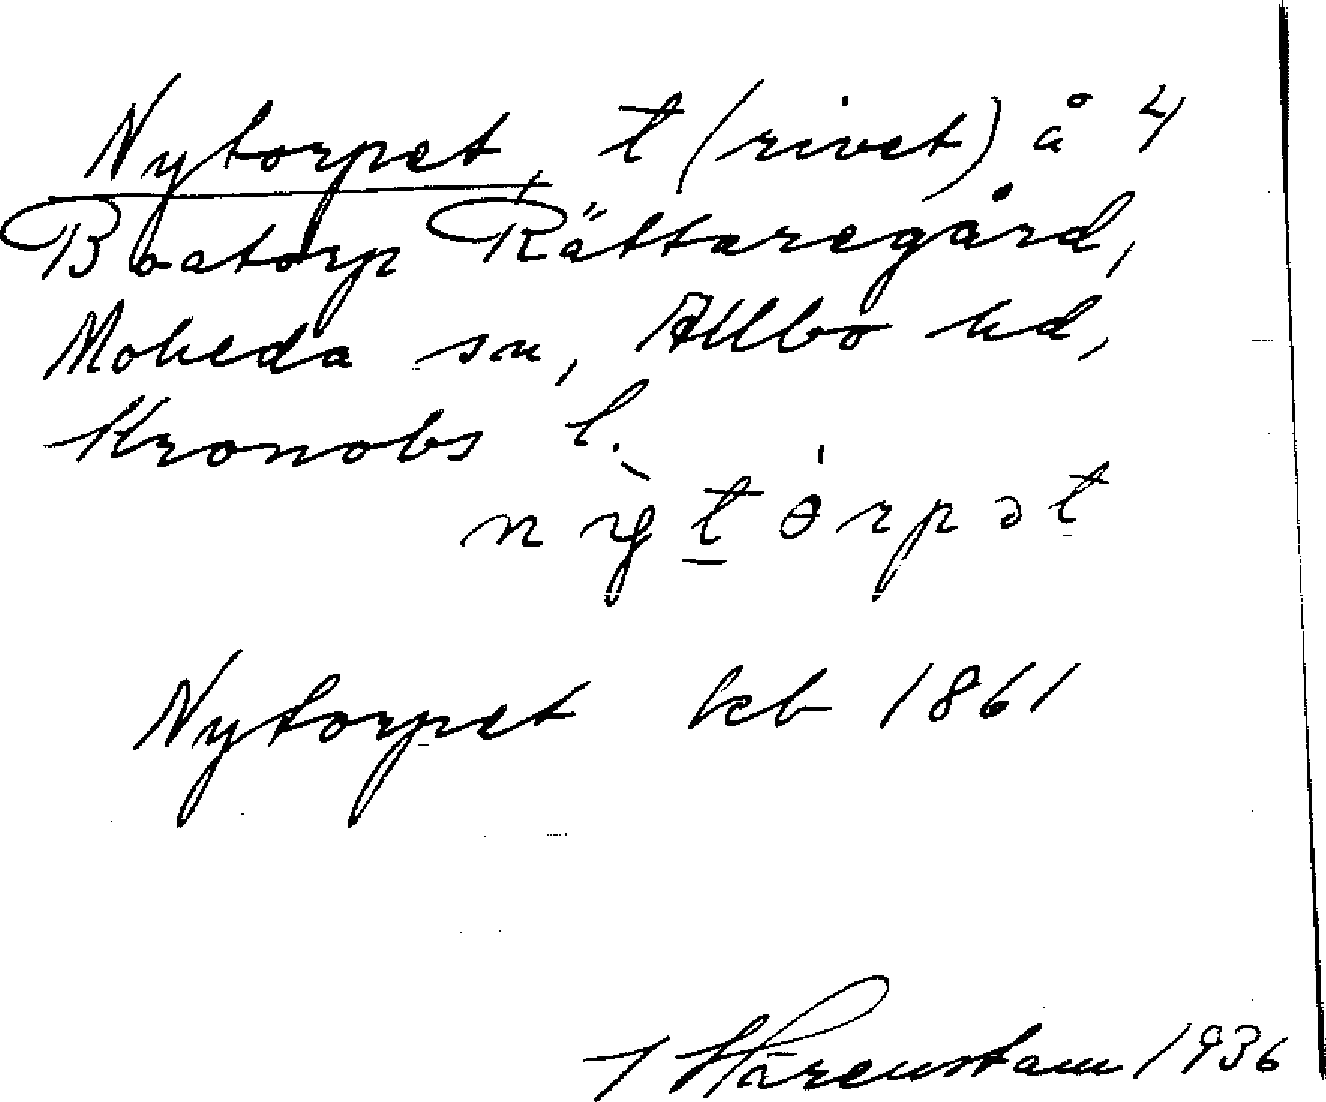 Nytorpet, t (rivet) å 4
Boatorp Rättaregård,
Moheda sn, Allbo hd,
Kronobs l.
nỳtɵ́rpət
Nytorpet kb 1861
J Härenstam 1936